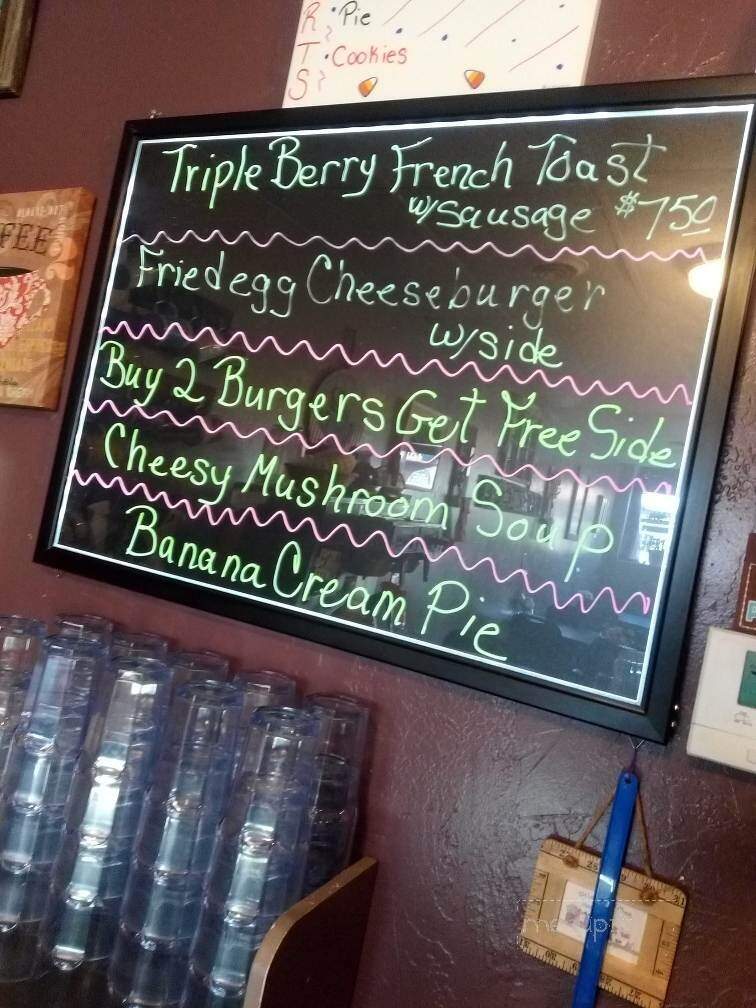 R Pie
T Cookies
S
FEE
Triple Berry French Toast
w/sausage $7.50
Fried egg Cheeseburger
w/side
Buy 2 Burgers Get Free Side
Cheesy Mushroom Soup
Banana Cream Pie